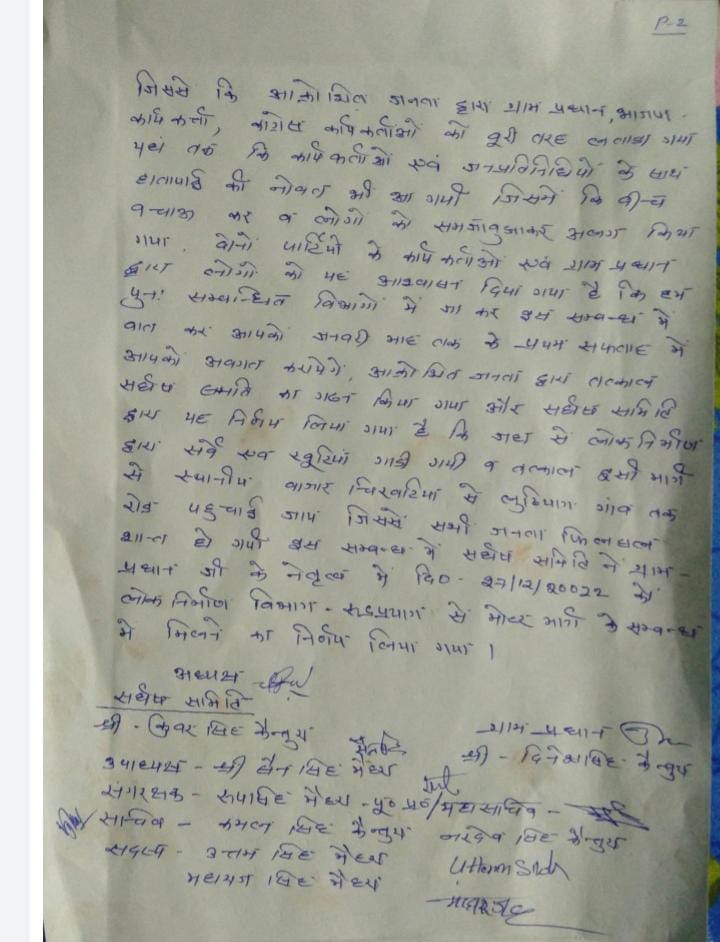 P-2
जिससे कि आक्रोशित जनता द्वारा ग्राम प्रधान, भाजपा
कार्यकर्त्ता, कांग्रेस कार्यकर्ताओं को पूरी तरह लताडा गया
यहां तक कि कार्यकर्ताओं एवं जनप्रतिनिधियों के साथ
हातापाई की नोवत भी आ गयी जिसमें कि बीच
बचाव कर व लोगों को समझाबुझाकर अलग किया
गया. दोनों पार्टियों के कार्यकर्ताओं एवं ग्राम प्रधान
द्वारा लोगों को यह आश्वासन दिया गया है कि हम
पुनः सम्बन्धित विभागों में जा कर इस सम्बन्ध में
बात कर आपको जनवरी माह तक के प्रथम सप्ताह में
आपको अवगत करायेगे, आक्रोशित जनता द्वारा तत्काल
सर्घष समिति का गठन किया गया और सर्घष समिति
द्वारा यह निर्णय लिया गया है कि जहा से लोक निर्माण
द्वारा सर्वे एवं खूटियां गाडी गयी व तत्काल इसी मार्ग
से स्थानीय बाजार चिरबटिया से लुटियाग गांव तक
रोड पहुचाई जाय जिससे सभी जनता फिलहाल
शान्त हो गयी इस सम्बन्ध में सर्घष समिति ने ग्राम-
प्रधान जी के नेतृत्व में दि0- 27/12/20022 को
लोक निर्माण विभाग - रुद्रप्रयाग से मोटर मार्ग के सम्बन्ध
मे मिलने का निर्णय लिया गया।
अध्यक्ष
सर्घष समिति
श्री - कुवर सिह कैन्तुरा ग्राम प्रधान
श्री - दिनेश सिह कैन्तुरा
उपाध्यक्ष - श्री सैन सिह मैहरा
संगरक्षक - रूपसिह मैहरा - पू0 प्र0/महासचिव -
सचिव - कमल सिह कैन्तुरा नरदेव सिह कैन्तुरा
सदस्य - उत्तम सिह मैहरा
मह सिह मैहरा